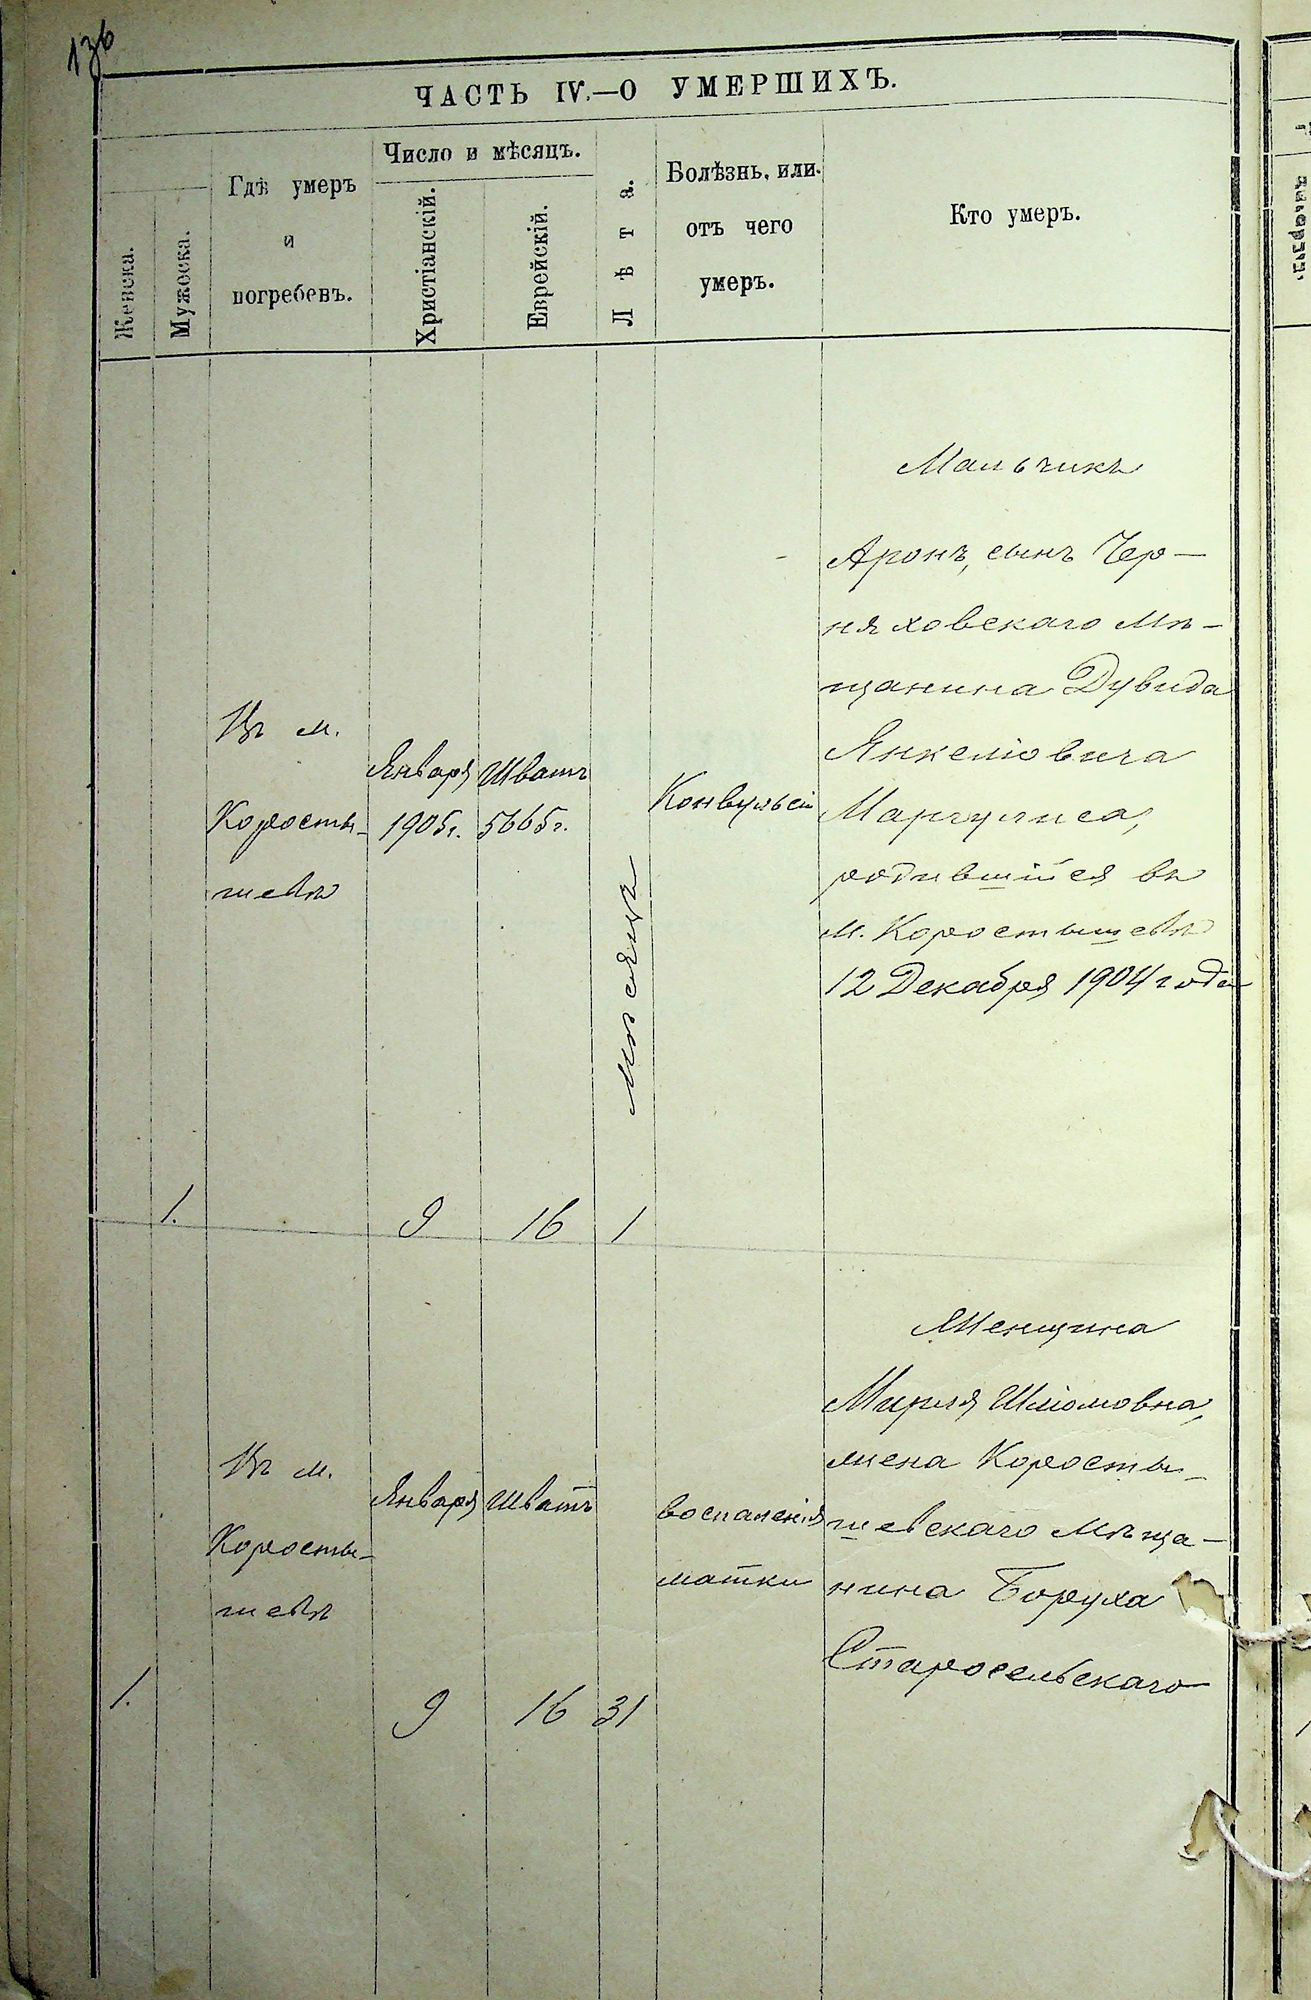 136
ЧАСТЬ IV.—О УМЕРШИХЪ.
Женска.
Мужеска.
Гдѣ умеръ
и
погребенъ.
Число и мѣсяцъ.
Христіанскій.
Еврейскій.
Лѣта.
Болѣзнь, или
отъ чего
умеръ.
Кто умеръ.
1.
Въ м.
Коросты-
шевѣ
Января
1905г.
9
Шватъ
5665г.
16
мѣсяцъ
1
Конвульсіи
Мальчикъ
Аронъ, сынъ Чер-
няховскаго мѣ-
щанина Дувида
Янкеліовича
Маргулиса,
родившійся въ
м. Коростышевѣ
12 Декабря 1904 года
1.
Въ м.
Коросты-
шевѣ
Января
9
Шватъ
16
31
воспаленія
матки
Женщина
Мирля Шліомовна,
жена Коросты-
шевскаго мѣща-
нина Боруха
Старосельскаго